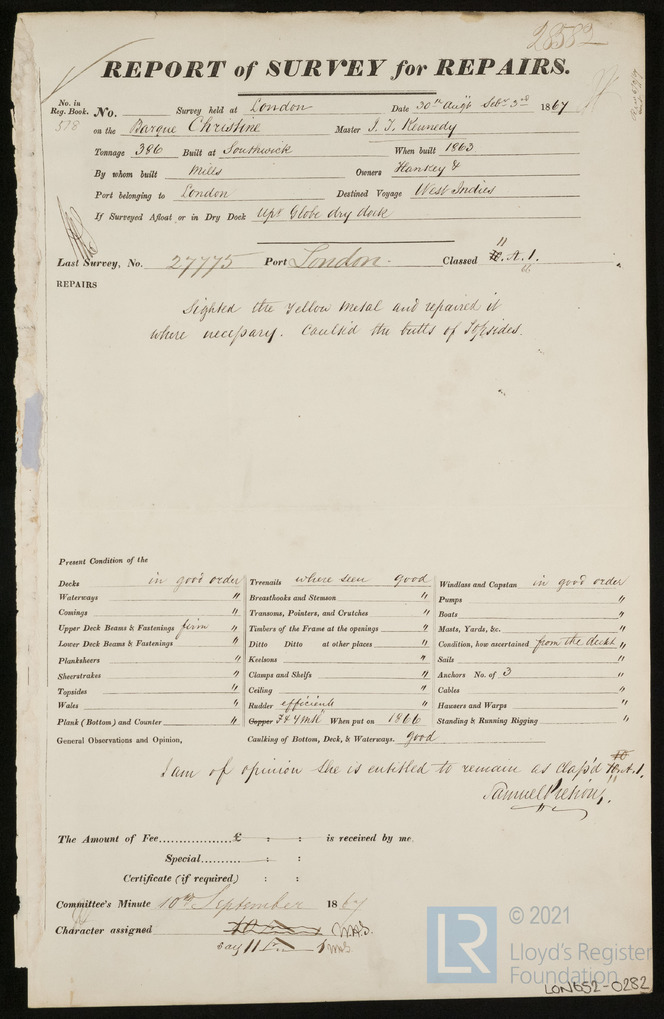 28582
REPORT of SURVEY for REPAIRS.
No. in Reg. Book. No. Survey held at London Date 30th Augt Sebr 3rd 1867
578 on the Barque Christine Master J. T. Kennedy
Tonnage 386 Built at Southwick When built 1863
By whom built Mills Owners Hankey &
Port belonging to London Destined Voyage West Indies
If Surveyed Afloat or in Dry Dock Upr Globe dry dock
Last Survey, No. 27775 Port London. Classed 11 A. 1.
REPAIRS
Sighted the Yellow Metal and repaired it
where necessary. Caulk'd the butts of Topsides.
Present Condition of the
Decks in good order Treenails where seen good Windlass and Capstan in good order
Waterways " Breasthooks and Stemson " Pumps "
Comings " Transoms, Pointers, and Crutches " Boats "
Upper Deck Beams & Fastenings firm " Timbers of the Frame at the openings " Masts, Yards, &c. "
Lower Deck Beams & Fastenings " Ditto Ditto at other places " Condition, how ascertained from the deck "
Planksheers " Keelsons " Sails "
Sheerstrakes " Clamps and Shelfs " Anchors No. of 3 "
Topsides " Ceiling " Cables "
Wales " Rudder efficient " Hawsers and Warps "
Plank (Bottom) and Counter " Copper F & Y Mtl When put on 1866 Standing & Running Rigging "
General Observations and Opinion, Caulking of Bottom, Deck, & Waterways. good
I am of opinion she is entitled to remain as Class'd A. 1.
Samuel Pretious
The Amount of Fee.................. £ : : is received by me.
Special.......... : :
Certificate (if required) : :
Committee's Minute 10th September 1867
Character assigned
say 11
© 2021
LR Lloyd's Register
Foundation
LON652-0282